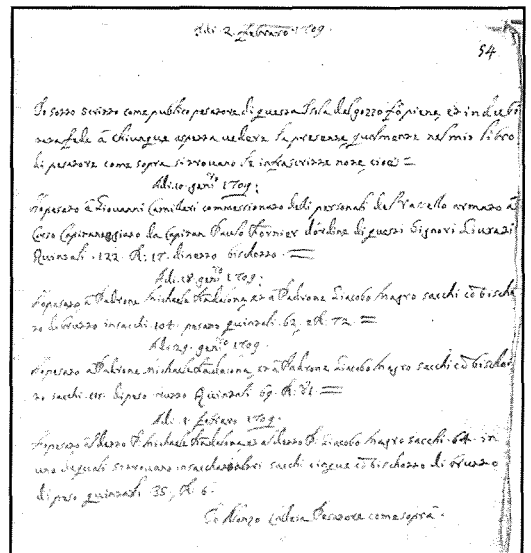 Adi 2 febraro 1709.
54
Io sotto scritto come publico pesatore di questa Isola del gozzo fò piena, et indubi
tata fede à chiunque aspetta vedere la presente qualmente nel mio libro
di pesatore come sopra si trovano le infrascritte note cioè =
Adi 10 genro 1709:
Ho pesato à Giovanni Camilleri commissionato delli personali del Vascello armato à
Corso Capitaneggiato da Capitan Paulo Fornier d'ordine di questi Signori Giurati
Quintali . 122 . R. 17. di netto biscotto . =
Adi 18 genro 1709:
Ho pesato à Padrone Michaele et à Padrone Giacobo Magro sacchi cò biscot
to de brutto in sacchi 104 . pesano quintali . 62 . R. 72 . =
Adi 29 . genro 1709 .
Ho pesato à Padrone Michaele et à Padrone Giacobo Magro sacchi cò biscot
to sacchi di peso Quintali 69 . R. 81 . =
Adi 1 febraro 1709 .
Ho pesato al detto P. Michaele et al detto P. Giacobo Magro sacchi . 64 . in
uno de quali si trovano insaccati altri sacchi cinque cò biscotto di brutto
di peso quintali 35 , R. 6 .
Io Alonzo Pesatore come soprà .